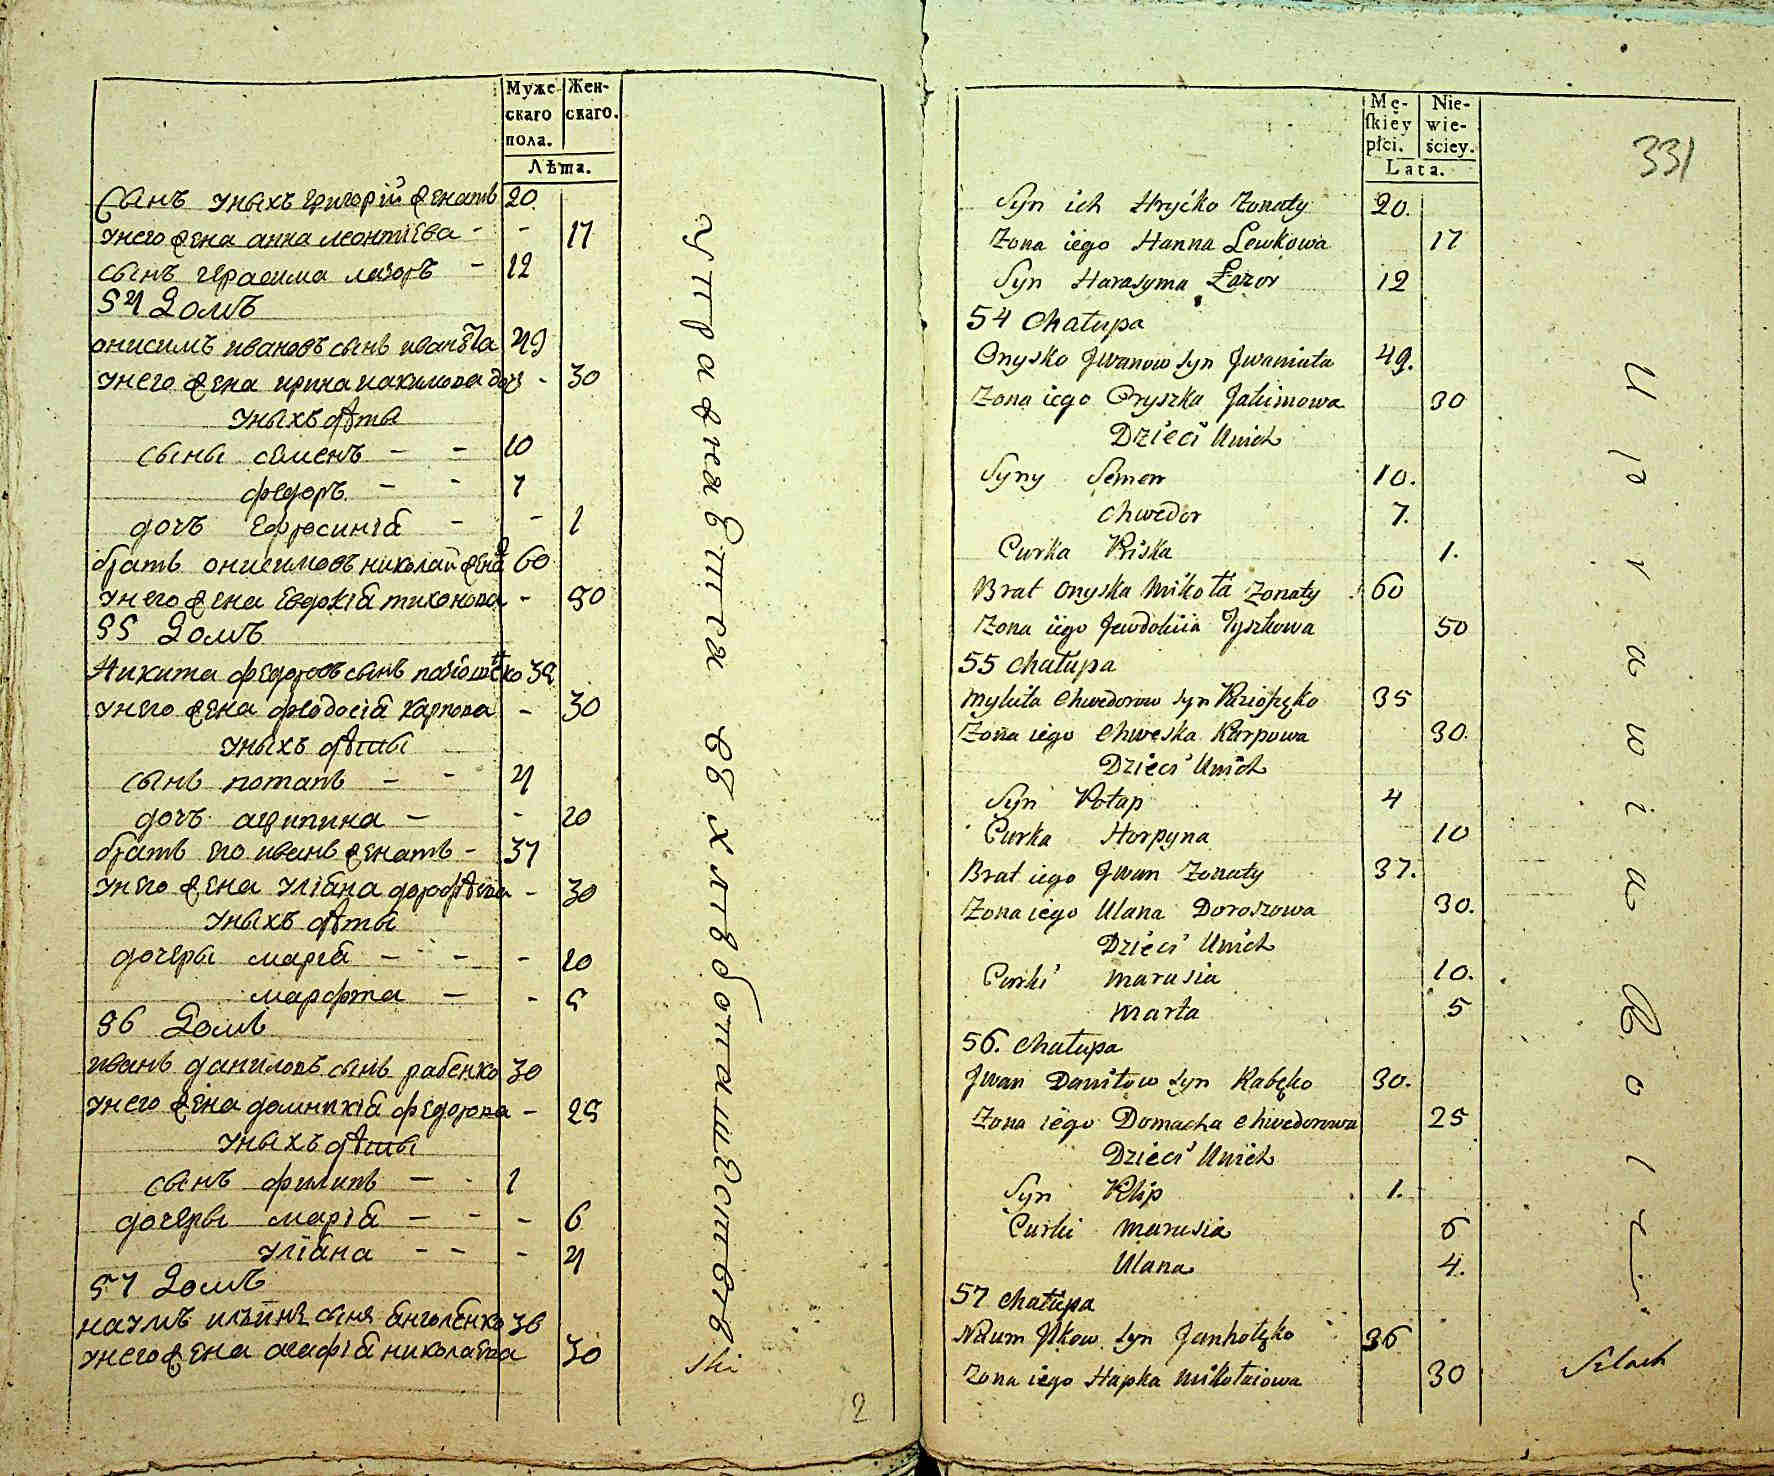 Муже-
скаго
пола.
Жен-
скаго.
Лѣта.
Сынъ уныхъ григорій женатъ 20
унего жена анна леонтіева - - 17
сынъ герасима лазоръ - 12
54 Домъ
онисимъ ивановъ сынъ 49
унего жена ирина иакимова доч - 30
уныхъ дѣти
сыны семенъ - - 10
федоръ - - 7
дочь ефросиніа - - 1
братъ онисимовъ николай жена 60
унего жена евдокіа тихонова - 50
55 Домъ
Никита федоровъ сынъ 35
унего жена феодосіа карпова - 30
уныхъ дѣти
сынъ потапъ - - 4
дочъ агрипина - - 10
братъ его иванъ женатъ - 37
унего жена уліана дорофѣева - 30
уныхъ дѣти
дочеры маріа - - - 10
марфта - - 5
56 Домъ
иванъ даниловъ сынъ рабенко 30
унего жена домникіа федорова - 25
уныхъ дѣти
сынъ филипъ - - 1
дочеры маріа - - - 6
уліана - - - 4
57 Домъ
наумъ сынъ 36
унего жена агафіа николаева 30
упражнаются въ хлѣбопашествѣ
ski
2
Mę-
skiey
płci.
Nie-
wie-
ściey.
Lata.
331
Syn ich Hryćko Zonaty 20.
Zona iego Hanna Lewkowa 17
Syn Harasyma Łazor 12
54 Chałupa
Onysko Jwanow syn Jwaniuta 49.
Zona iego Oryszka Jakimowa 30
Dzieci Unich
Syny Semen 10.
Chwedor 7.
Curka Priska 1.
Brat Onyska Mikoła Zonaty 60
Zona iego Jewdokiia Tyszkowa 50
55 Chałupa
Mykita Chwedorow syn 35
Zona iego Chweska Karpowa 30.
Dzieci Unich
Syn Potap 4
Curka Horpyna 10
Brat iego Jwan Zonaty 37.
Zona iego Ulana Doroszowa 30.
Dzieci Unich
Curki Marusia 10.
Marta 5
56. Chałupa
Jwan Daniłow syn Rabęko 30.
Zona iego Domacha Chwedorowa 25
Dzieci Unich
Syn Pilip 1.
Curki Marusia 6
Ulana 4.
57 Chałupa
Naum Jlkow syn Janhołęko 36
Zona iego Hapka Mikołaiowa 30
Uprawia Rolę
Szlach